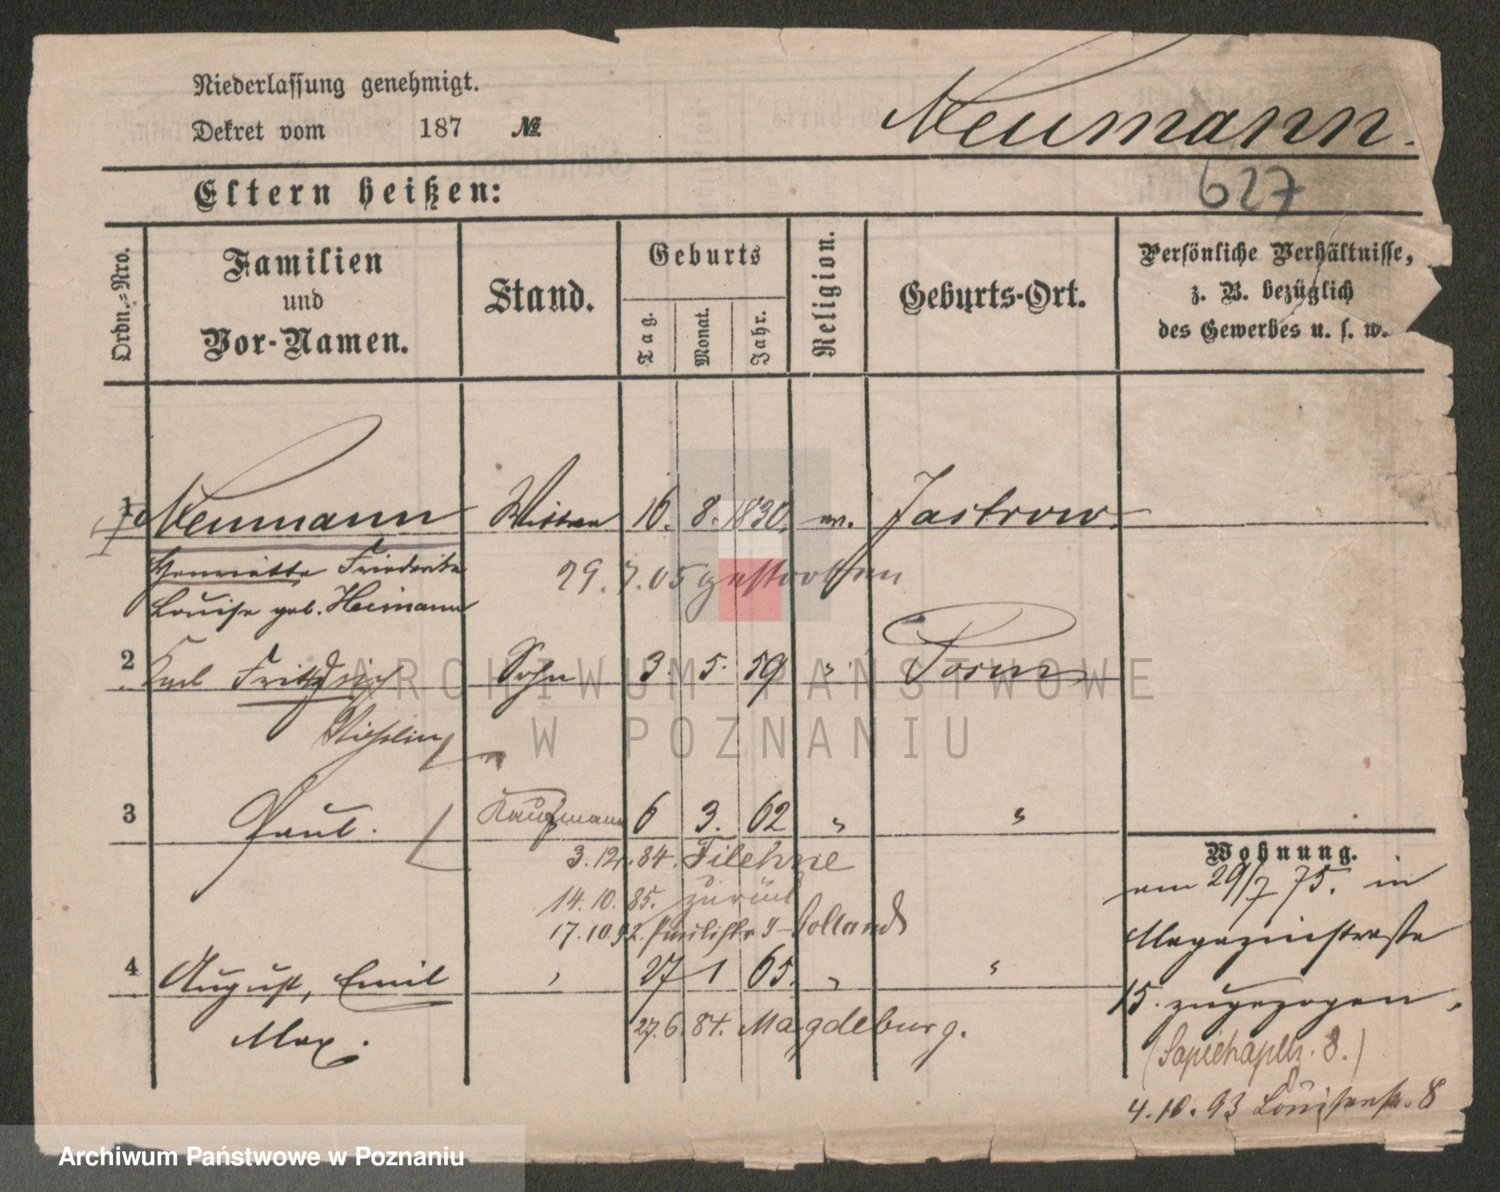 Niederlassung genehmigt.
Dekret vom 187 №
Neumann.
627
Eltern heißen:
Ordn.-Nro.
Familien
und
Vor-Namen.
Stand.
Geburts
Tag.
Monat.
Jahr.
Religion.
Geburts-Ort.
Persönliche Verhältnisse,
z. B. bezüglich
des Gewerbes u. s. w.
1 Neumann Wittwe 16. 8. 1830. ev. Jastrow
Henriette Friederike
Louise geb. Heimann
29. 7. 05 gestorben
2 Karl Friedrich Sohn 3. 5. 59 " Posen
3 Paul. Kaufmann 6 3. 62 " "
3. 12. 84. Filehne
14. 10. 85. zurück
17. 10. 92.
4 August, Emil " 27 1 65. " "
Max.
27. 6. 84. Magdeburg.
Wohnung.
am 29/7 75. in
Magazinstraße
15. zugezogen.
(Sapiehapltz. 8.)
4. 10. 93 Louisenstr. 8
ARCHIWUM PAŃSTWOWE
W POZNANIU
Archiwum Państwowe w Poznaniu